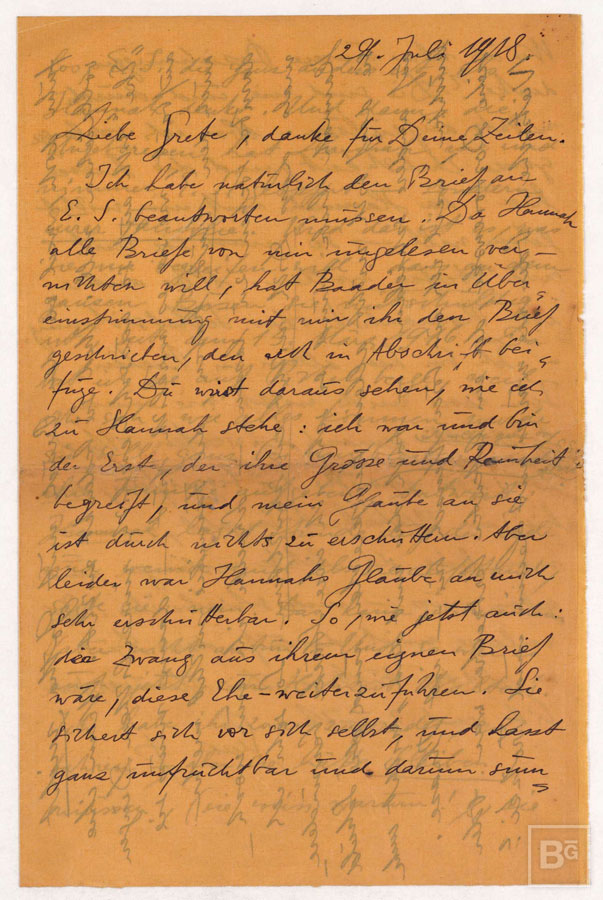 29. Juli 1918.
Liebe Grete, danke für Deine Zeilen.
Ich habe natürlich den Brief an
E. S. beantworten müssen. Da Hannah
alle Briefe von mir ungelesen ver-
nichten will, hat Baader in Über-
einstimmung mit mir ihr den Brief
geschrieben, den ich in Abschrift bei-
füge. Du wirst daraus sehen, wie ich
zu Hannah stehe: ich war und bin
der Erst, der ihre Grösse und Reinheit
begreift, und mein Glaube an sie
ist durch nichts zu erschüttern. Aber
leider war Hannahs Glaube an mich
sehr erschütterbar. So, wie jetzt auch:
Zwang aus ihrem eignen Brief
wäre, diese Ehe weiterzuführen. Sie
sichert sich vor sich selbst, und hasst
ganz unfruchtbar und darum sinn-
BG